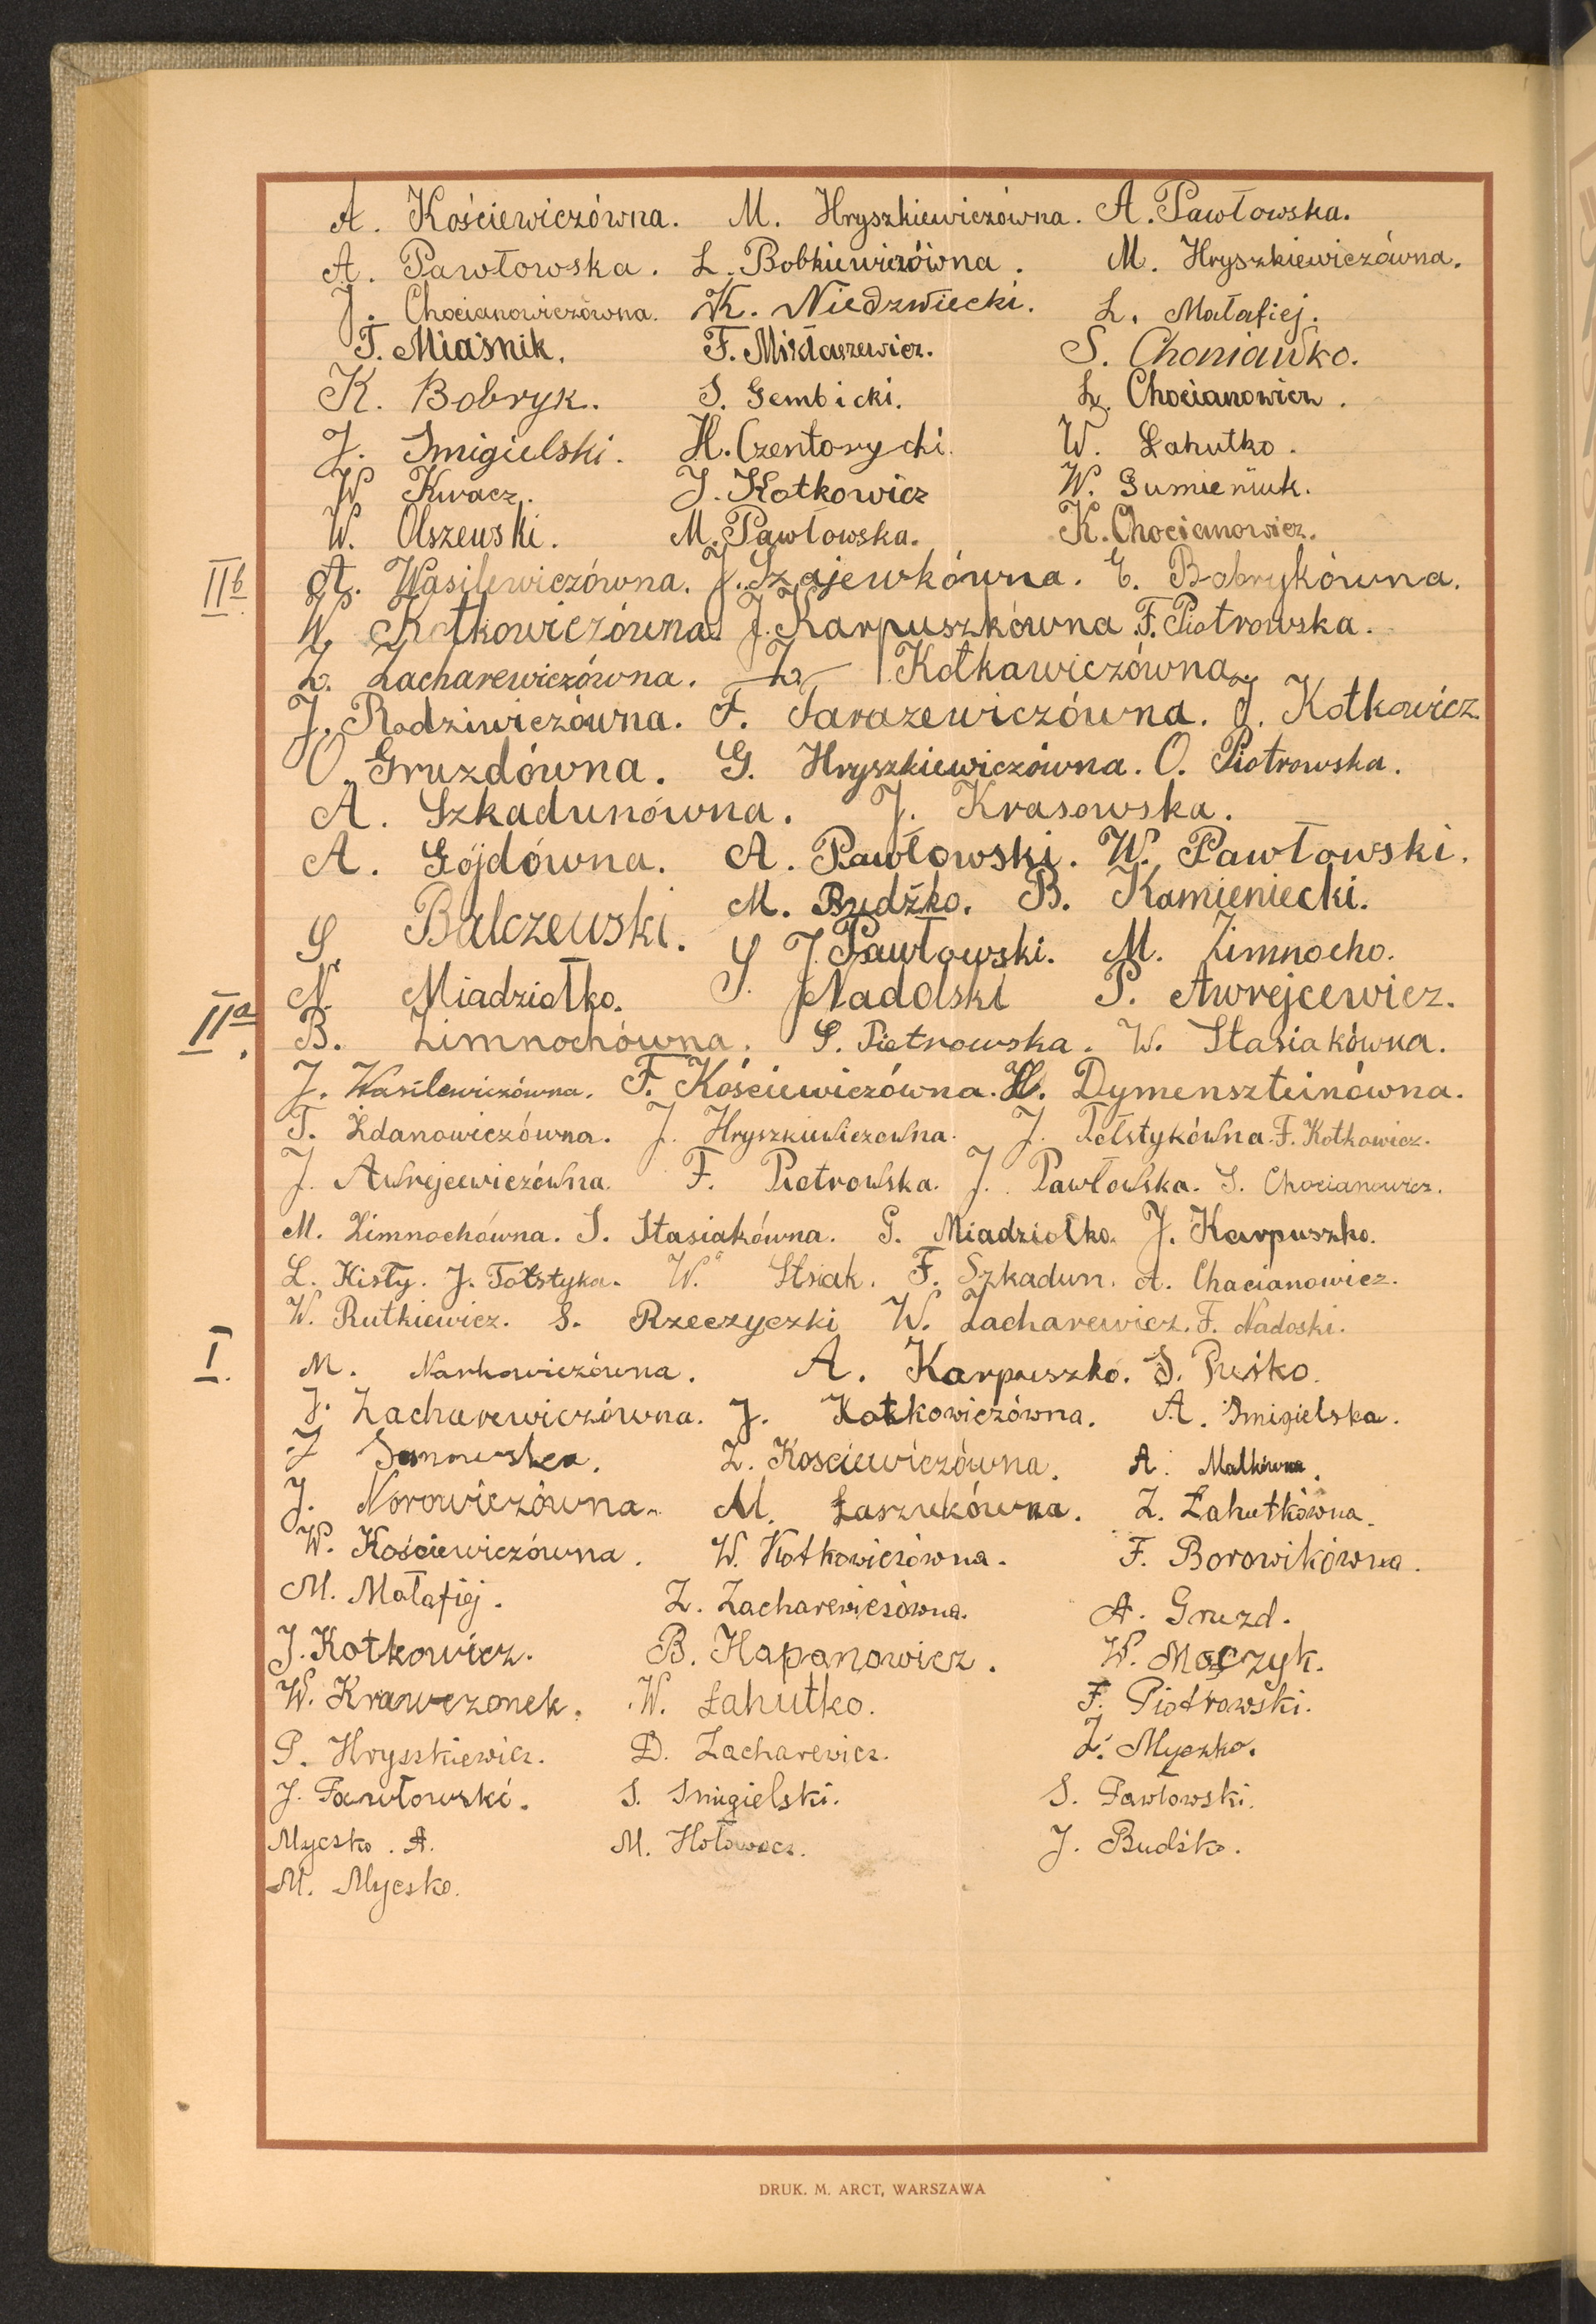 A. Kościewiczówna. M. Hryszkiewiczówna. A. Pawłowska.
A. Pawłowska. L. Bobkiewiczówna. M. Hryszkiewiczówna.
J. Chocianowiczówna. K. Niedzwiecki. L. Małafiej.
T. Miaśnik. F. Mikłaszewicz. S. Choniawko.
K. Bobryk. S. Gembicki. L. Chocianowicz.
J. Smigielski. H. Czentorycki. W. Łahutko.
W Kwacz. J. Kotkowicz W. Gumieniuk.
W. Olszewski. M. Pawłowska. K. Chocianowicz.
IIb A. Wasilewiczówna. J. Szajewkówna. E. Bobrykówna.
W. Kotkowiczówna. J. Karpuszkówna. F. Piotrowska.
Z. Zacharewiczówna. Z. Kotkawiczówna.
J. Rodziwiczówna. F. Tarazewiczówna. J. Kotkowicz
O. Gruzdówna. G. Hryszkiewiczówna. O. Piotrowska.
A. Szkadunówna. J. Krasowska.
A. Gójdówna. A. Pawłowski. W. Pawłowski.
M. Budźko. B. Kamieniecki.
S. Balczewski. J. Pawłowski. M. Zimnocho.
N. Miadziołko. S. Nadolski P. Awrejcewicz.
IIa. B. Zimnochówna. S. Pietrowska. W. Stasiakówna.
J. Wasilewiczówna. F. Kościewiczówna. H. Dymenszteinówna.
T. Żdanowiczówna. J. Hryszkiewiczówna. J. Tołstykówna. F. Kotkowicz.
J. Awrejcewiczówna. F. Piotrowska. J. Pawłowska. S. Chocianowicz.
M. Zimnochówna. S. Stasiakówna. G. Miadziołko. J. Karpuszko.
L. Kisły. J. Tołstyka. W. Stsiak. F. Szkadun. A. Chacianowicz.
W. Rutkiewicz. S. Rzeczyczki W. Zacharewicz. F. Nadoski.
I. M. Narkowiczówna. A. Karpuszko. S. Puśko.
J. Zacharewiczówna. J. Kotkowiczówna. A. Smigielska.
J Z. Kosciewiczówna. A. Matkówna.
J. Norowiczówna. M. Łaszukówna. Z. Łahutkówna.
W. Kościewiczówna. W. Kotkowiczówna. F. Borowikówna.
M. Małafiej. Z. Zacharewiczówna. A. Gruzd.
J. Kotkowicz. B. Hapanowicz. W. Moczyk.
W. Krawczonek. W. Łahutko. F. Piotrowski.
P. Hryszkiewicz. D. Zacharewicz. Z. Myczko.
J. Pawłowski. S. Smigielski. S. Pawłowski.
Myczko. A. M. Hołowacz. J. Budźko.
M. Myczko.
DRUK. M. ARCT, WARSZAWA